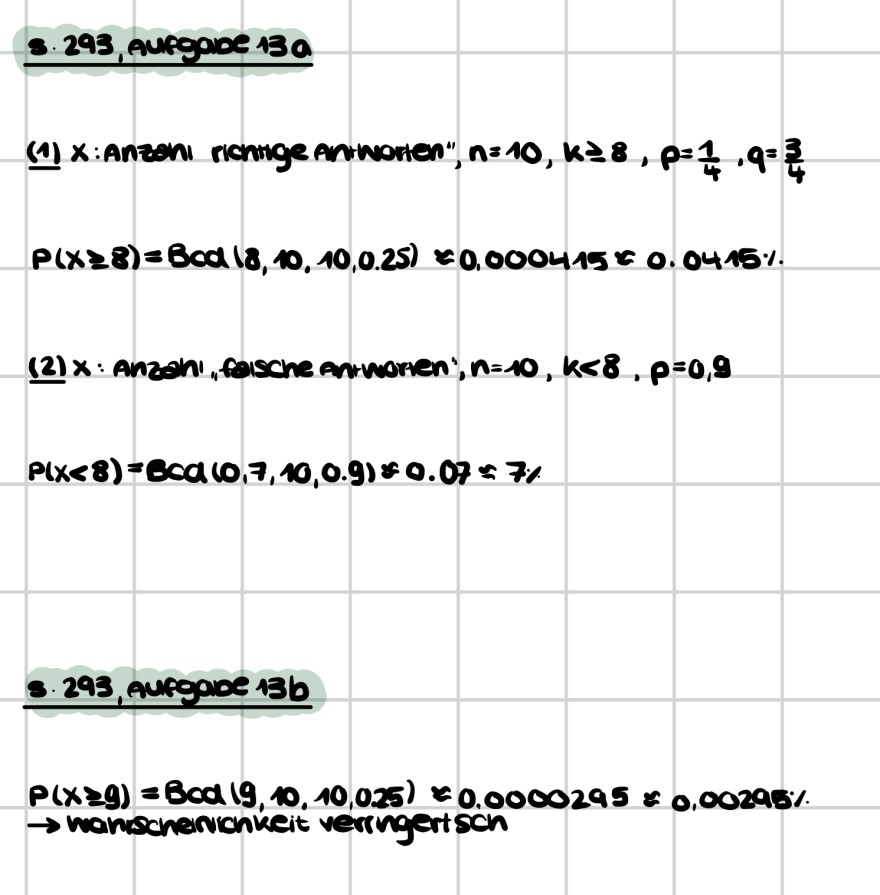 S. 293, Aufgabe 13a
(1) X: Anzahl richtige Antworten", n=10, k≥8, p=1/4, q=3/4
P(X≥8) = Bcd(8, 10, 10, 0.25) ≈ 0,000415 ≈ 0.0415%.
(2) X: Anzahl „falsche Antworten", n=10, k<8, p=0,9
P(X<8) = Bcd(0,7,10,0.9) ≈ 0.07 ≈ 7%
S. 293, Aufgabe 13b
P(X≥9) = Bcd(9, 10, 10, 0.25) ≈ 0.0000295 ≈ 0,00295%.
→ Wahrscheinlichkeit verringert sich